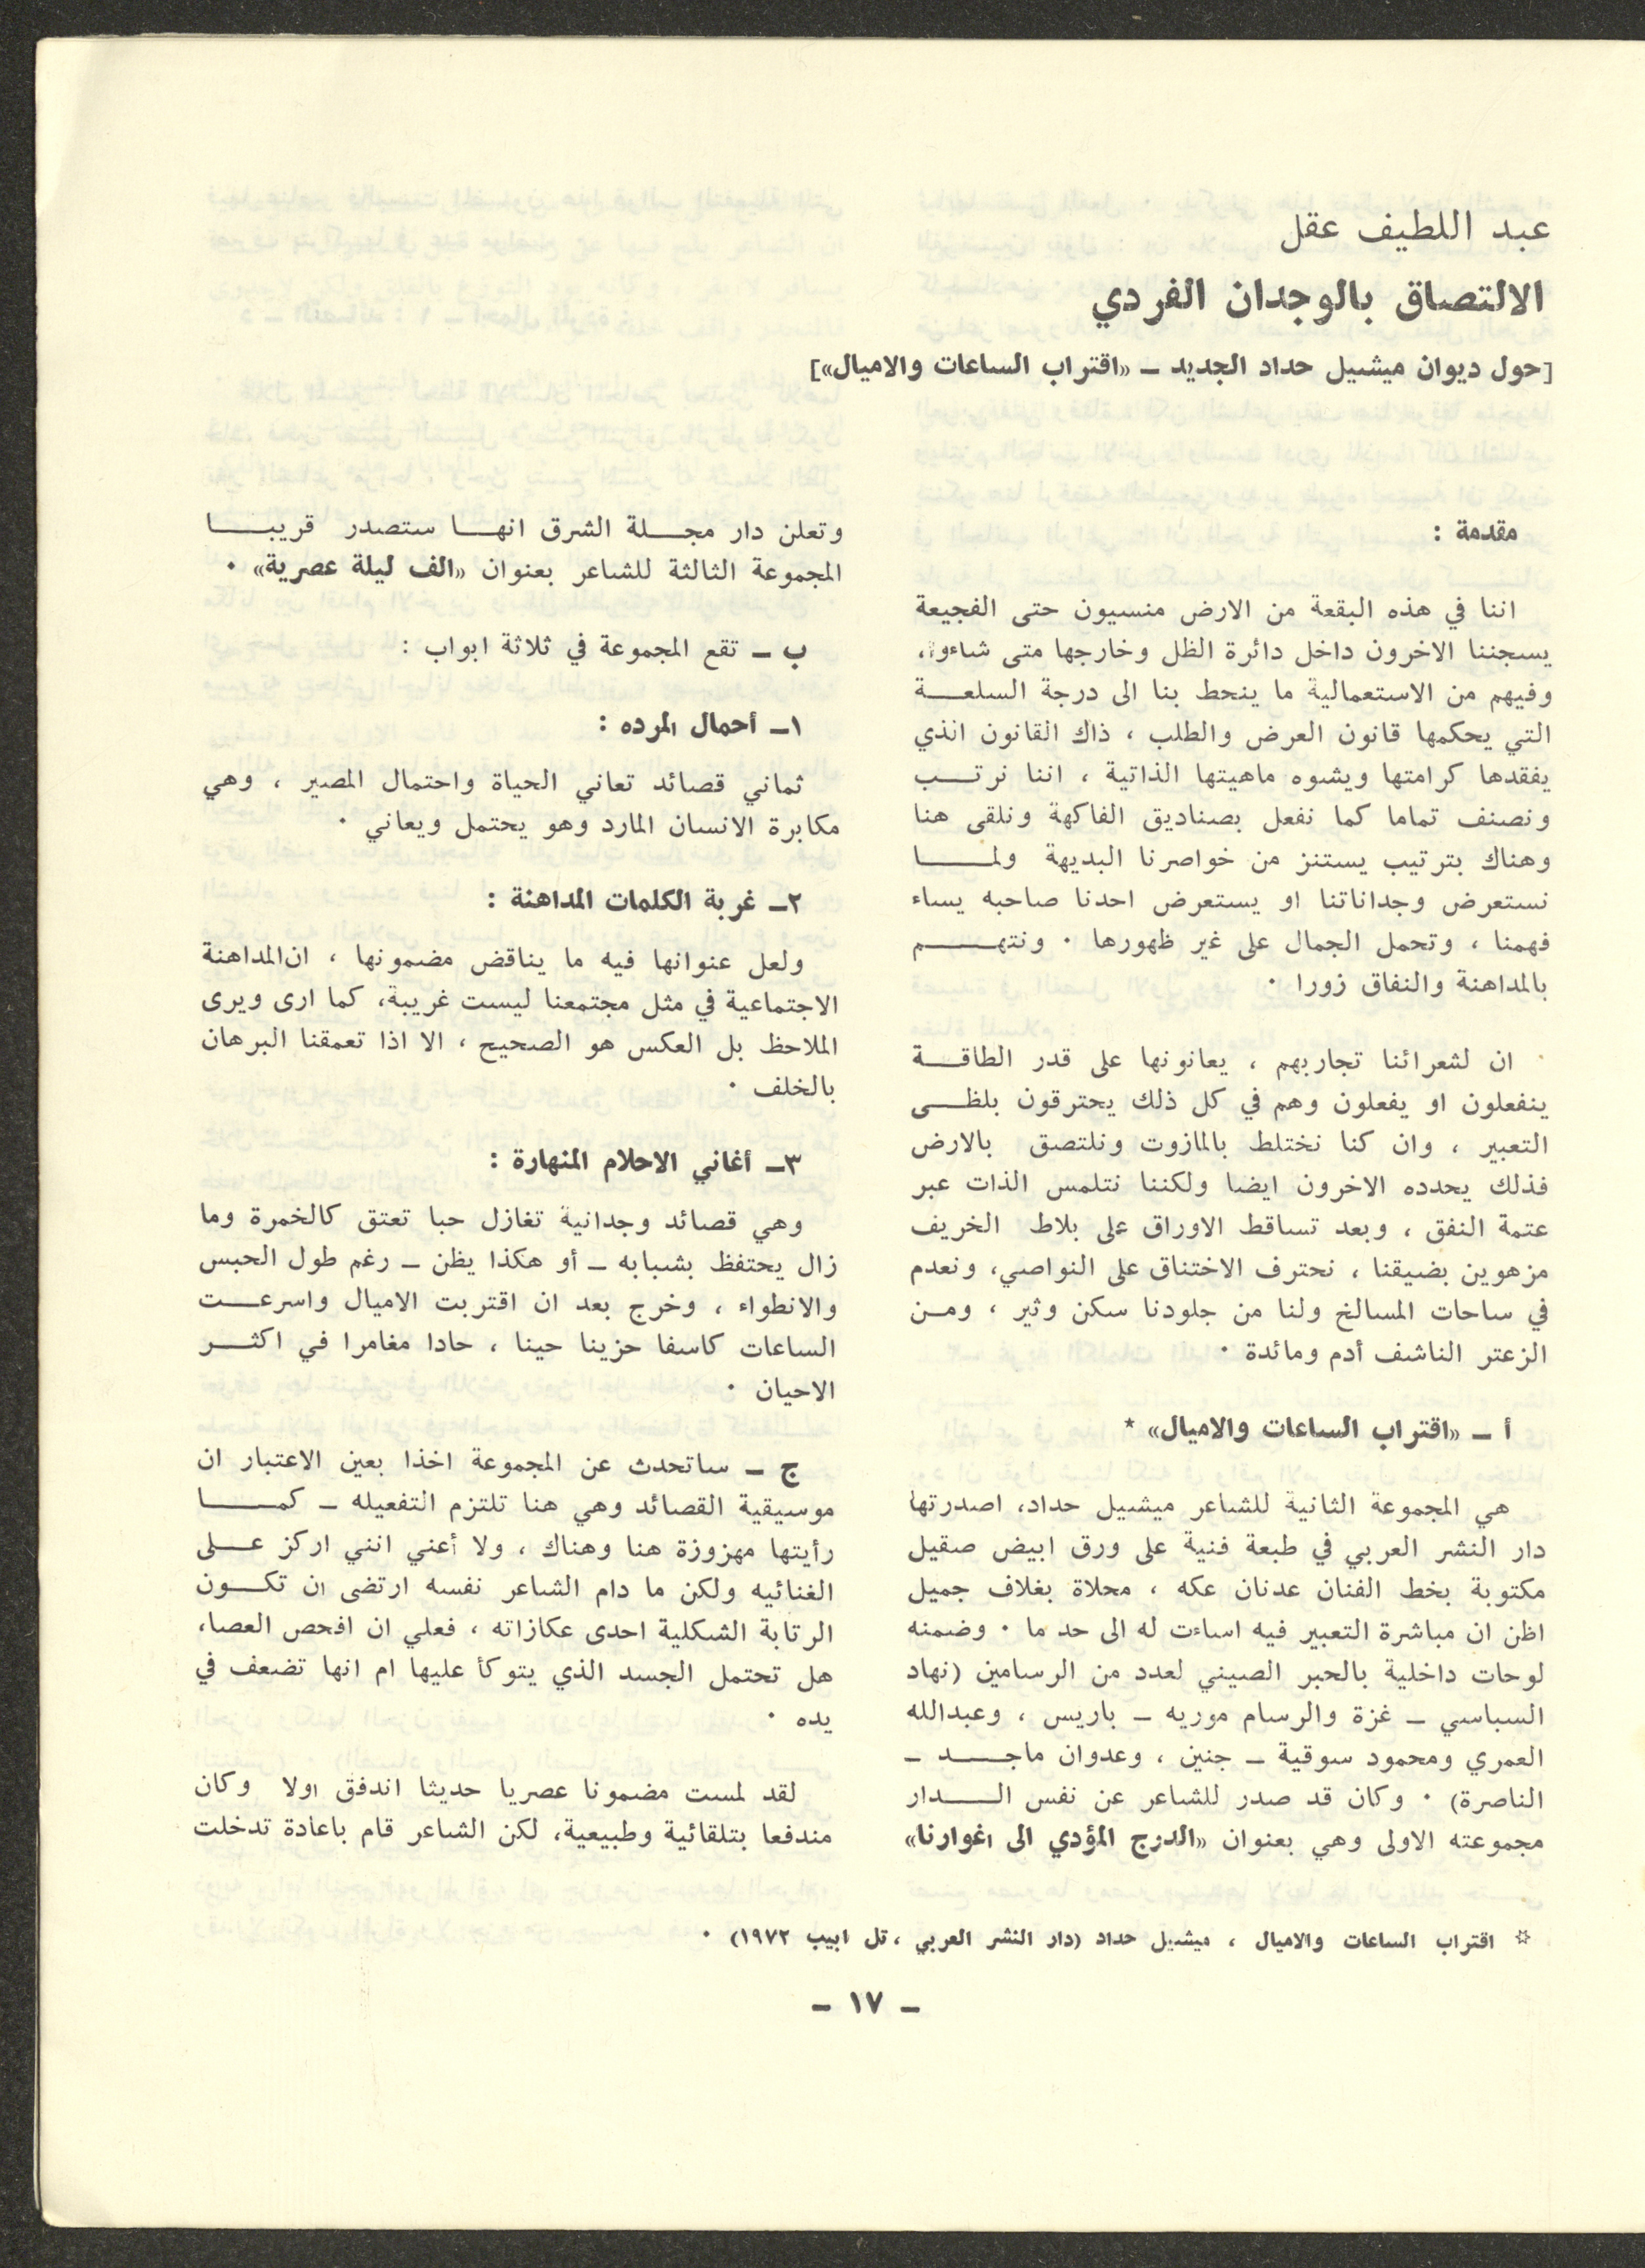 عبد اللطيف عقل
الالتصاق بالوجدان الفردي
[حول ديوان ميشيل حداد الجديد ــ «اقتراب الساعات والاميال»]
مقدمة :
اننا في هذه البقعة من الارض منسيون حتى الفجيعة
يسجننا الاخرون داخل دائرة الظل وخارجها متى شاءوا،
وفيهم من الاستعمالية ما ينحط بنا الى درجة السلعــة
التي يحكمها قانون العرض والطلب ، ذاك القانون الذي
يفقدها كرامتها ويشوه ماهيتها الذاتية ، اننا نرتــب
ونصنف تماما كما نفعل بصناديق الفاكهة ونلقى هنا
وهناك بترتيب يستنز من خواصرنا البديهة ولمــــا
نستعرض وجداناتنا او يستعرض احدنا صاحبه يساء
فهمنا ، وتحمل الجمال على غير ظهورها ٠ ونتهــــم
بالمداهنة والنفاق زورا ٠
ان لشعرائنا تجاربهم ، يعانونها على قدر الطاقــة
ينفعلون او يفعلون وهم في كل ذلك يحترقون بلظــى
التعبير ، وان كنا نختلط بالمازوت ونلتصق بالارض
فذلك يحدده الاخرون ايضا ولكننا نتلمس الذات عبر
عتمة النفق ، وبعد تساقط الاوراق على بلاط الخريف
مزهوين بضيقنا ، نحترف الاختناق على النواصي، ونعدم
في ساحات المسالخ ولنا من جلودنا سكن وثير ، ومــن
الزعتر الناشف أدم ومائدة ٠
أ ــ «اقتراب الساعات والاميال» *
هي المجموعة الثانية للشاعر ميشيل حداد، اصدرتها
دار النشر العربي في طبعة فنية على ورق ابيض صقيل
مكتوبة بخط الفنان عدنان عكه ، محلاة بغلاف جميل
اظن ان مباشرة التعبير فيه اساءت له الى حد ما ٠ وضمنه
لوحات داخلية بالحبر الصيني لعدد من الرسامين (نهاد
السباسي ــ غزة والرسام موريه ــ باريس ، وعبدالله
العمري ومحمود سوقية ــ جنين ، وعدوان ماجــد ــ
الناصرة) ٠ وكان قد صدر للشاعر عن نفس الــــدار
مجموعته الاولى وهي بعنوان «الدرج المؤدي الى اغوارنا»
وتعلن دار مجــلة الشرق انهــا ستصدر قريبــا
المجموعة الثالثة للشاعر بعنوان «الف ليلة عصرية» ٠
ب ــ تقع المجموعة في ثلاثة ابواب :
١ــ أحمال المرده :
ثماني قصائد تعاني الحياة واحتمال المصير ، وهي
مكابرة الانسان المارد وهو يحتمل ويعاني ٠
٢ــ غربة الكلمات المداهنة :
ولعل عنوانها فيه ما يناقض مضمونها ، ان المداهنة
الاجتماعية في مثل مجتمعنا ليست غريبة، كما ارى ويرى
الملاحظ بل العكس هو الصحيح ، الا اذا تعمقنا البرهان
بالخلف ٠
٣ــ أغاني الاحلام المنهارة :
وهي قصائد وجدانية تغازل حبا تعتق كالخمرة وما
زال يحتفظ بشبابه ــ أو هكذا يظن ــ رغم طول الحبس
والانطواء ، وخرج بعد ان اقتربت الاميال واسرعــت
الساعات كاسفا حزينا حينا ، حادا مغامرا في اكثــر
الاحيان ٠
ج ــ ساتحدث عن المجموعة اخذا بعين الاعتبار ان
موسيقية القصائد وهي هنا تلتزم التفعيله ــ كمــــا
رأيتها مهزوزة هنا وهناك ، ولا أعني انني اركز عــلى
الغنائيه ولكن ما دام الشاعر نفسه ارتضى ان تكــون
الرتابة الشكلية احدى عكازاته ، فعلي ان افحص العصا،
هل تحتمل الجسد الذي يتوكأ عليها ام انها تضعف في
يده ٠
لقد لمست مضمونا عصريا حديثا اندفق اولا وكان
مندفعا بتلقائية وطبيعية، لكن الشاعر قام باعادة تدخلت
* اقتراب الساعات والاميال ، ميشيل حداد (دار النشر العربي ، تل ابيب ١٩٧٢) ٠
ــ ١٧ ــ